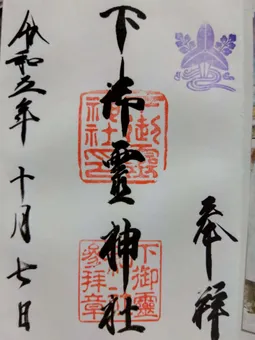 奉拝
下御霊神社
令和五年十月七日
下御靈
神社印
下御靈
參拝章